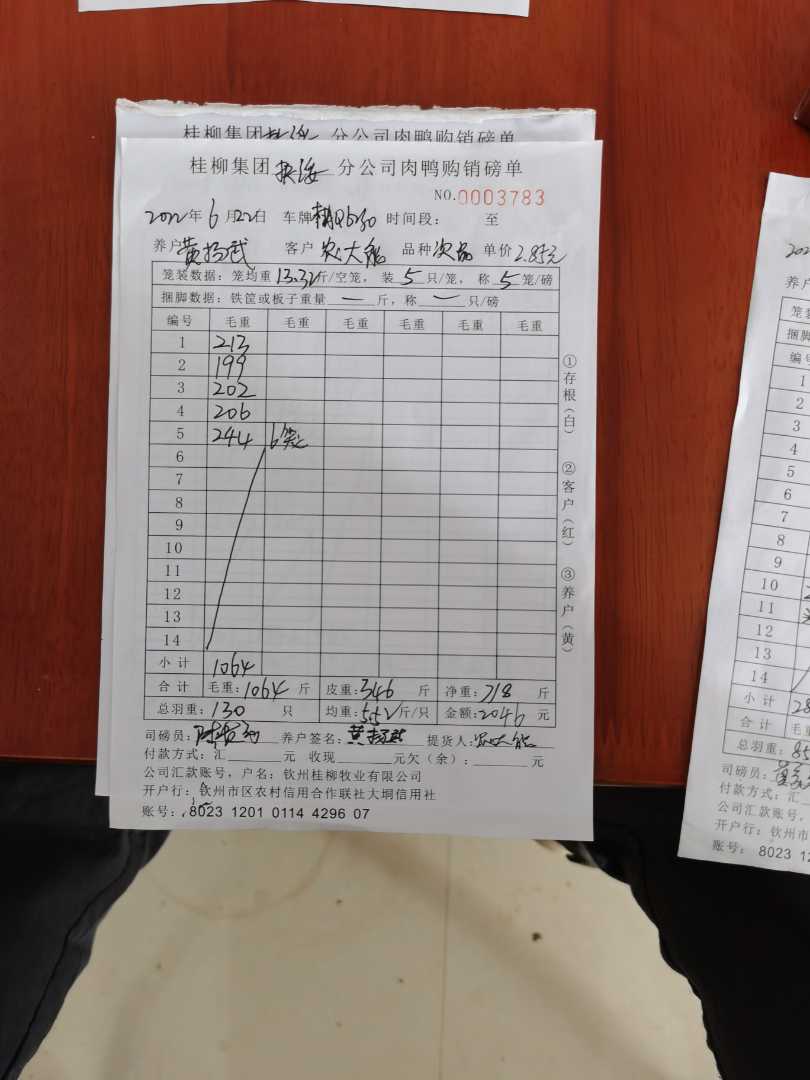 桂柳集团 分公司肉鸭购销磅单
桂柳集团 分公司肉鸭购销磅单
NO.0003783
2022年6月22日 车牌 时间段: 至
养户黄扬武 客户 农大能 品种 次品 单价2.85元
笼装数据:笼均重13.32斤/空笼,装5只/笼,称5笼/磅
捆脚数据:铁筐或板子重量一斤,称一只/磅
编号 毛重 毛重 毛重 毛重 毛重 毛重
1 213
2 199
3 202
4 206
5 244 6笼
6
7
8
9
10
11
12
13
14
小计 1064
合计 毛重:1064斤 皮重:346斤 净重:718斤
总羽重:130只 均重:5.52斤/只 金额:2046元
司磅员: 养户签名:黄扬武 提货人:农大能
付款方式:汇 元 收现 元欠(余): 元
公司汇款账号,户名:钦州桂柳牧业有限公司
开户行:钦州市区农村信用合作联社大垌信用社
账号:8023 1201 0114 4296 07
①存根(白) ②客户(红) ③养户(黄)
202
养户
笼装
捆脚
编号
1
2
3
4
5
6
7
8
9
10
11
12
13
14
小计 28
合计 毛
总羽重:85
司磅员:
付款方式:汇
公司汇款账号,
开户行:钦州市
账号: 8023 12